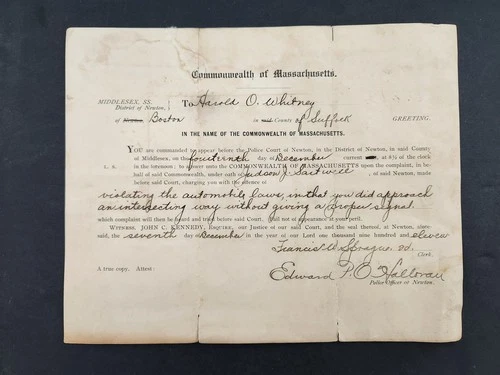 Commonwealth of Massachusetts.
MIDDLESEX, SS.
District of Newton,
To Harold O. Whitney
of Newton, Boston in said County of Suffolk GREETING.
IN THE NAME OF THE COMMONWEALTH OF MASSACHUSETTS.
YOU are commanded to appear before the Police Court of Newton, in the District of Newton, in said County
of Middlesex, on the fourteenth day of December current at 8½ of the clock
in the forenoon; to answer unto the COMMONWEALTH OF MASSACHUSETTS upon the complaint, in be-
L. S. half of said Commonwealth, under oath of Judson J. , of said Newton, made
before said Court, charging you with the offence of
violating the automobile laws, in that you did approach
an intersecting way without giving a proper signal
which complaint will then be heard and tried before said Court. Fail not of appearance at your peril.
WITNESS, JOHN C. KENNEDY, ESQUIRE, our Justice of our said Court, and the seal thereof, at Newton, afore-
said, the seventh day of December in the year of our Lord one thousand nine hundred and eleven
Francis W. Sprague, 2d.
Clerk.
A true copy. Attest:
Edward P. O'Halloran
Police Officer of Newton.